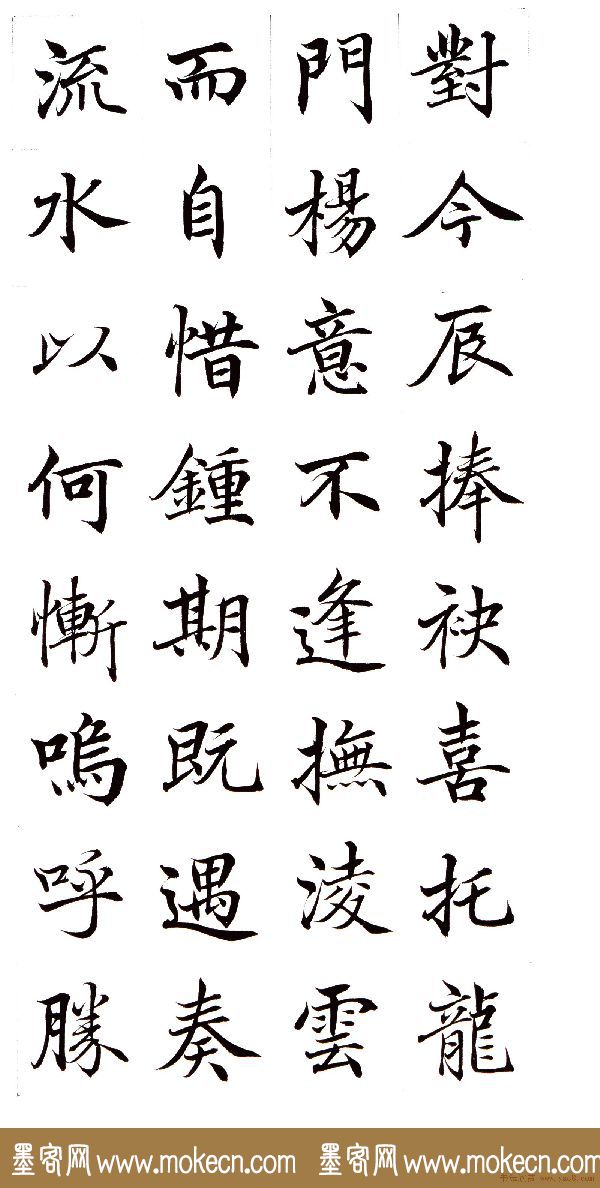 對今辰捧袂喜托龍
門楊意不逢撫淩雲
而自惜鍾期既遇奏
流水以何慚嗚呼勝
墨客网 www.mokecn.com 墨客网 www.mokecn.com